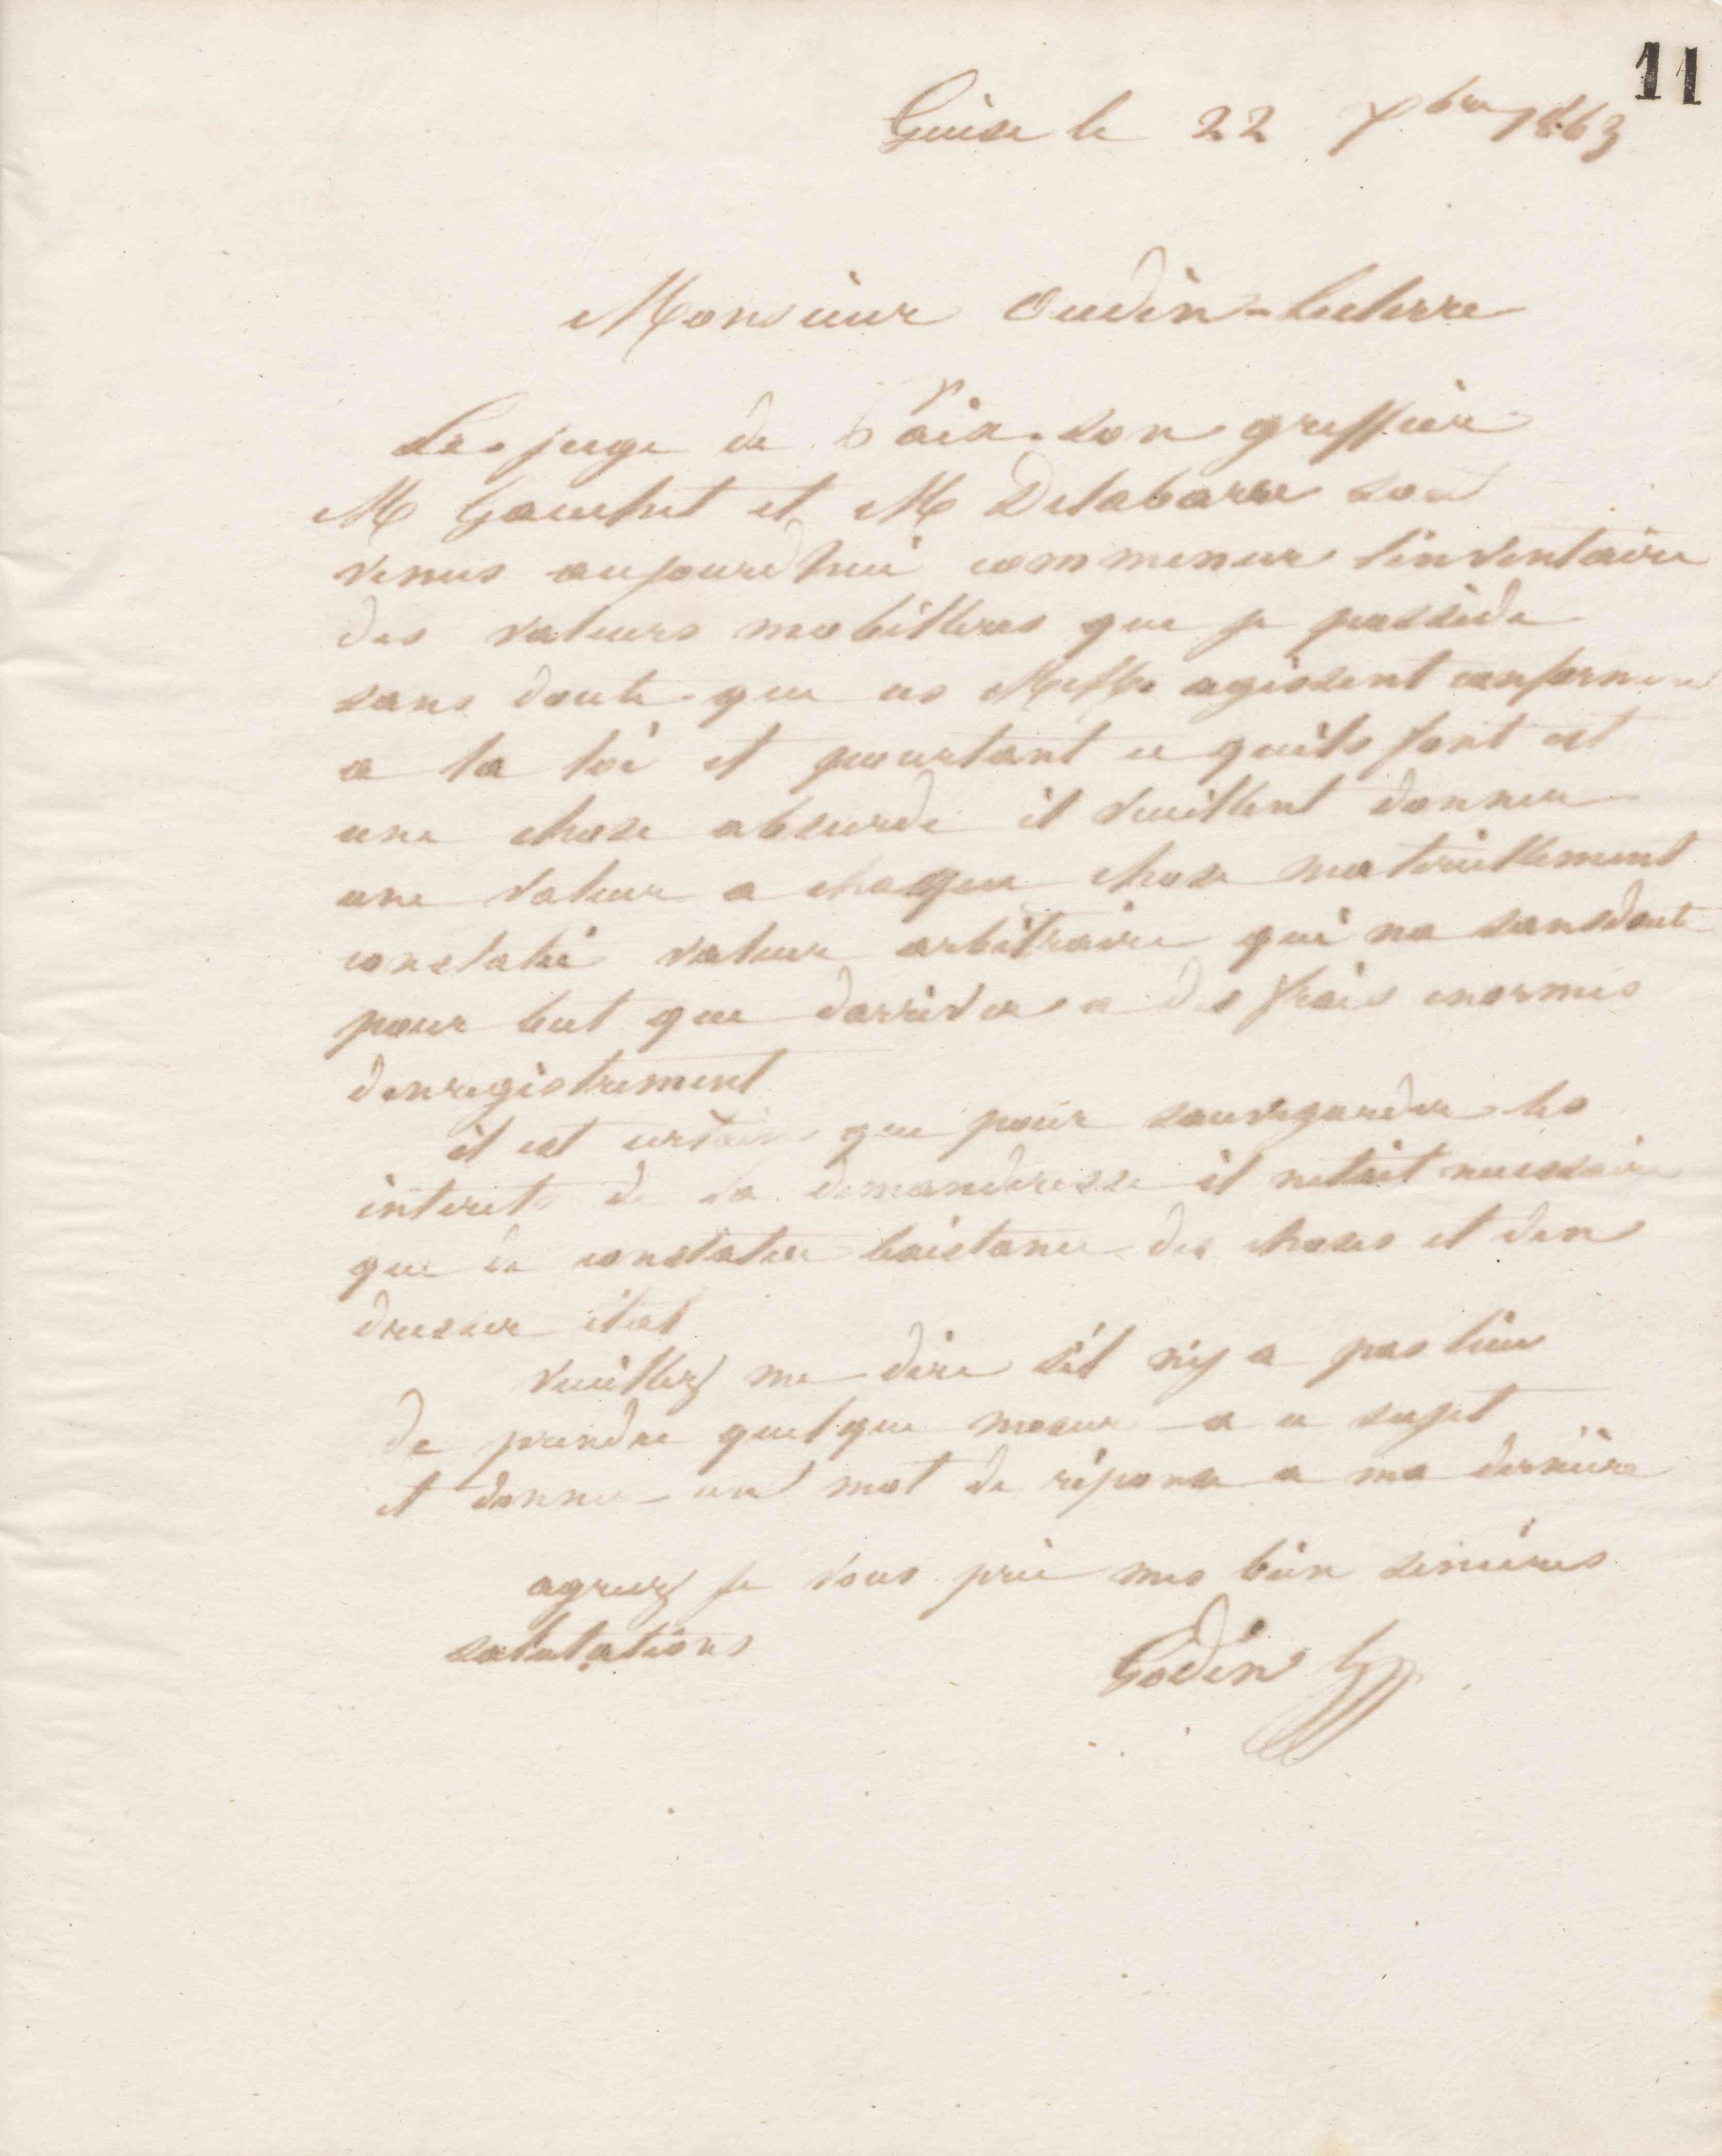 11
Guise le 22 7bre 1863
Monsieur Oudin-Leclerre
Le juge de Paix son greffier
M Gauchet et M Delabarre sont
venus aujourdhui commencer linventaire
des valeurs mobillieres que je possède
sans doute que ces Mess. agissent conforme
a la loi et pourtant ce quils font est
une chose absurde il veuillent donner
une valeur a chaque chose materiellement
constatée valeur arbitraire qui na sans doute
pour but que darriver a des frais enormes
denregistrement
il est certain que pour sauvegarder les
interets de la demanderesse il netait necessaire
que de constater lexistance des choses et den
dresser état
veuillez me dire sil ny a pas lieu
de prendre quelque mesure a ce sujet
et donner un mot de réponse a ma dernière
agreez je vous prie mes bien sincères
salutations
Godin